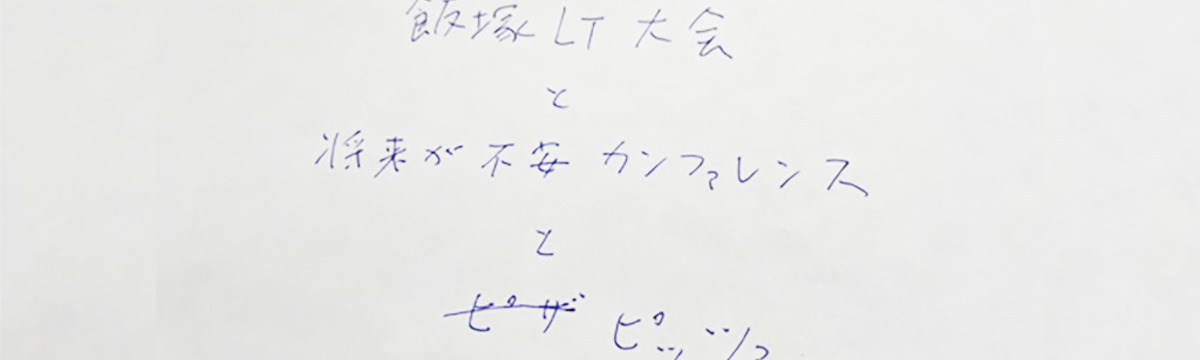 飯塚LT大会
と
将来が不安カンファレンス
と
ピザ ピッツァ